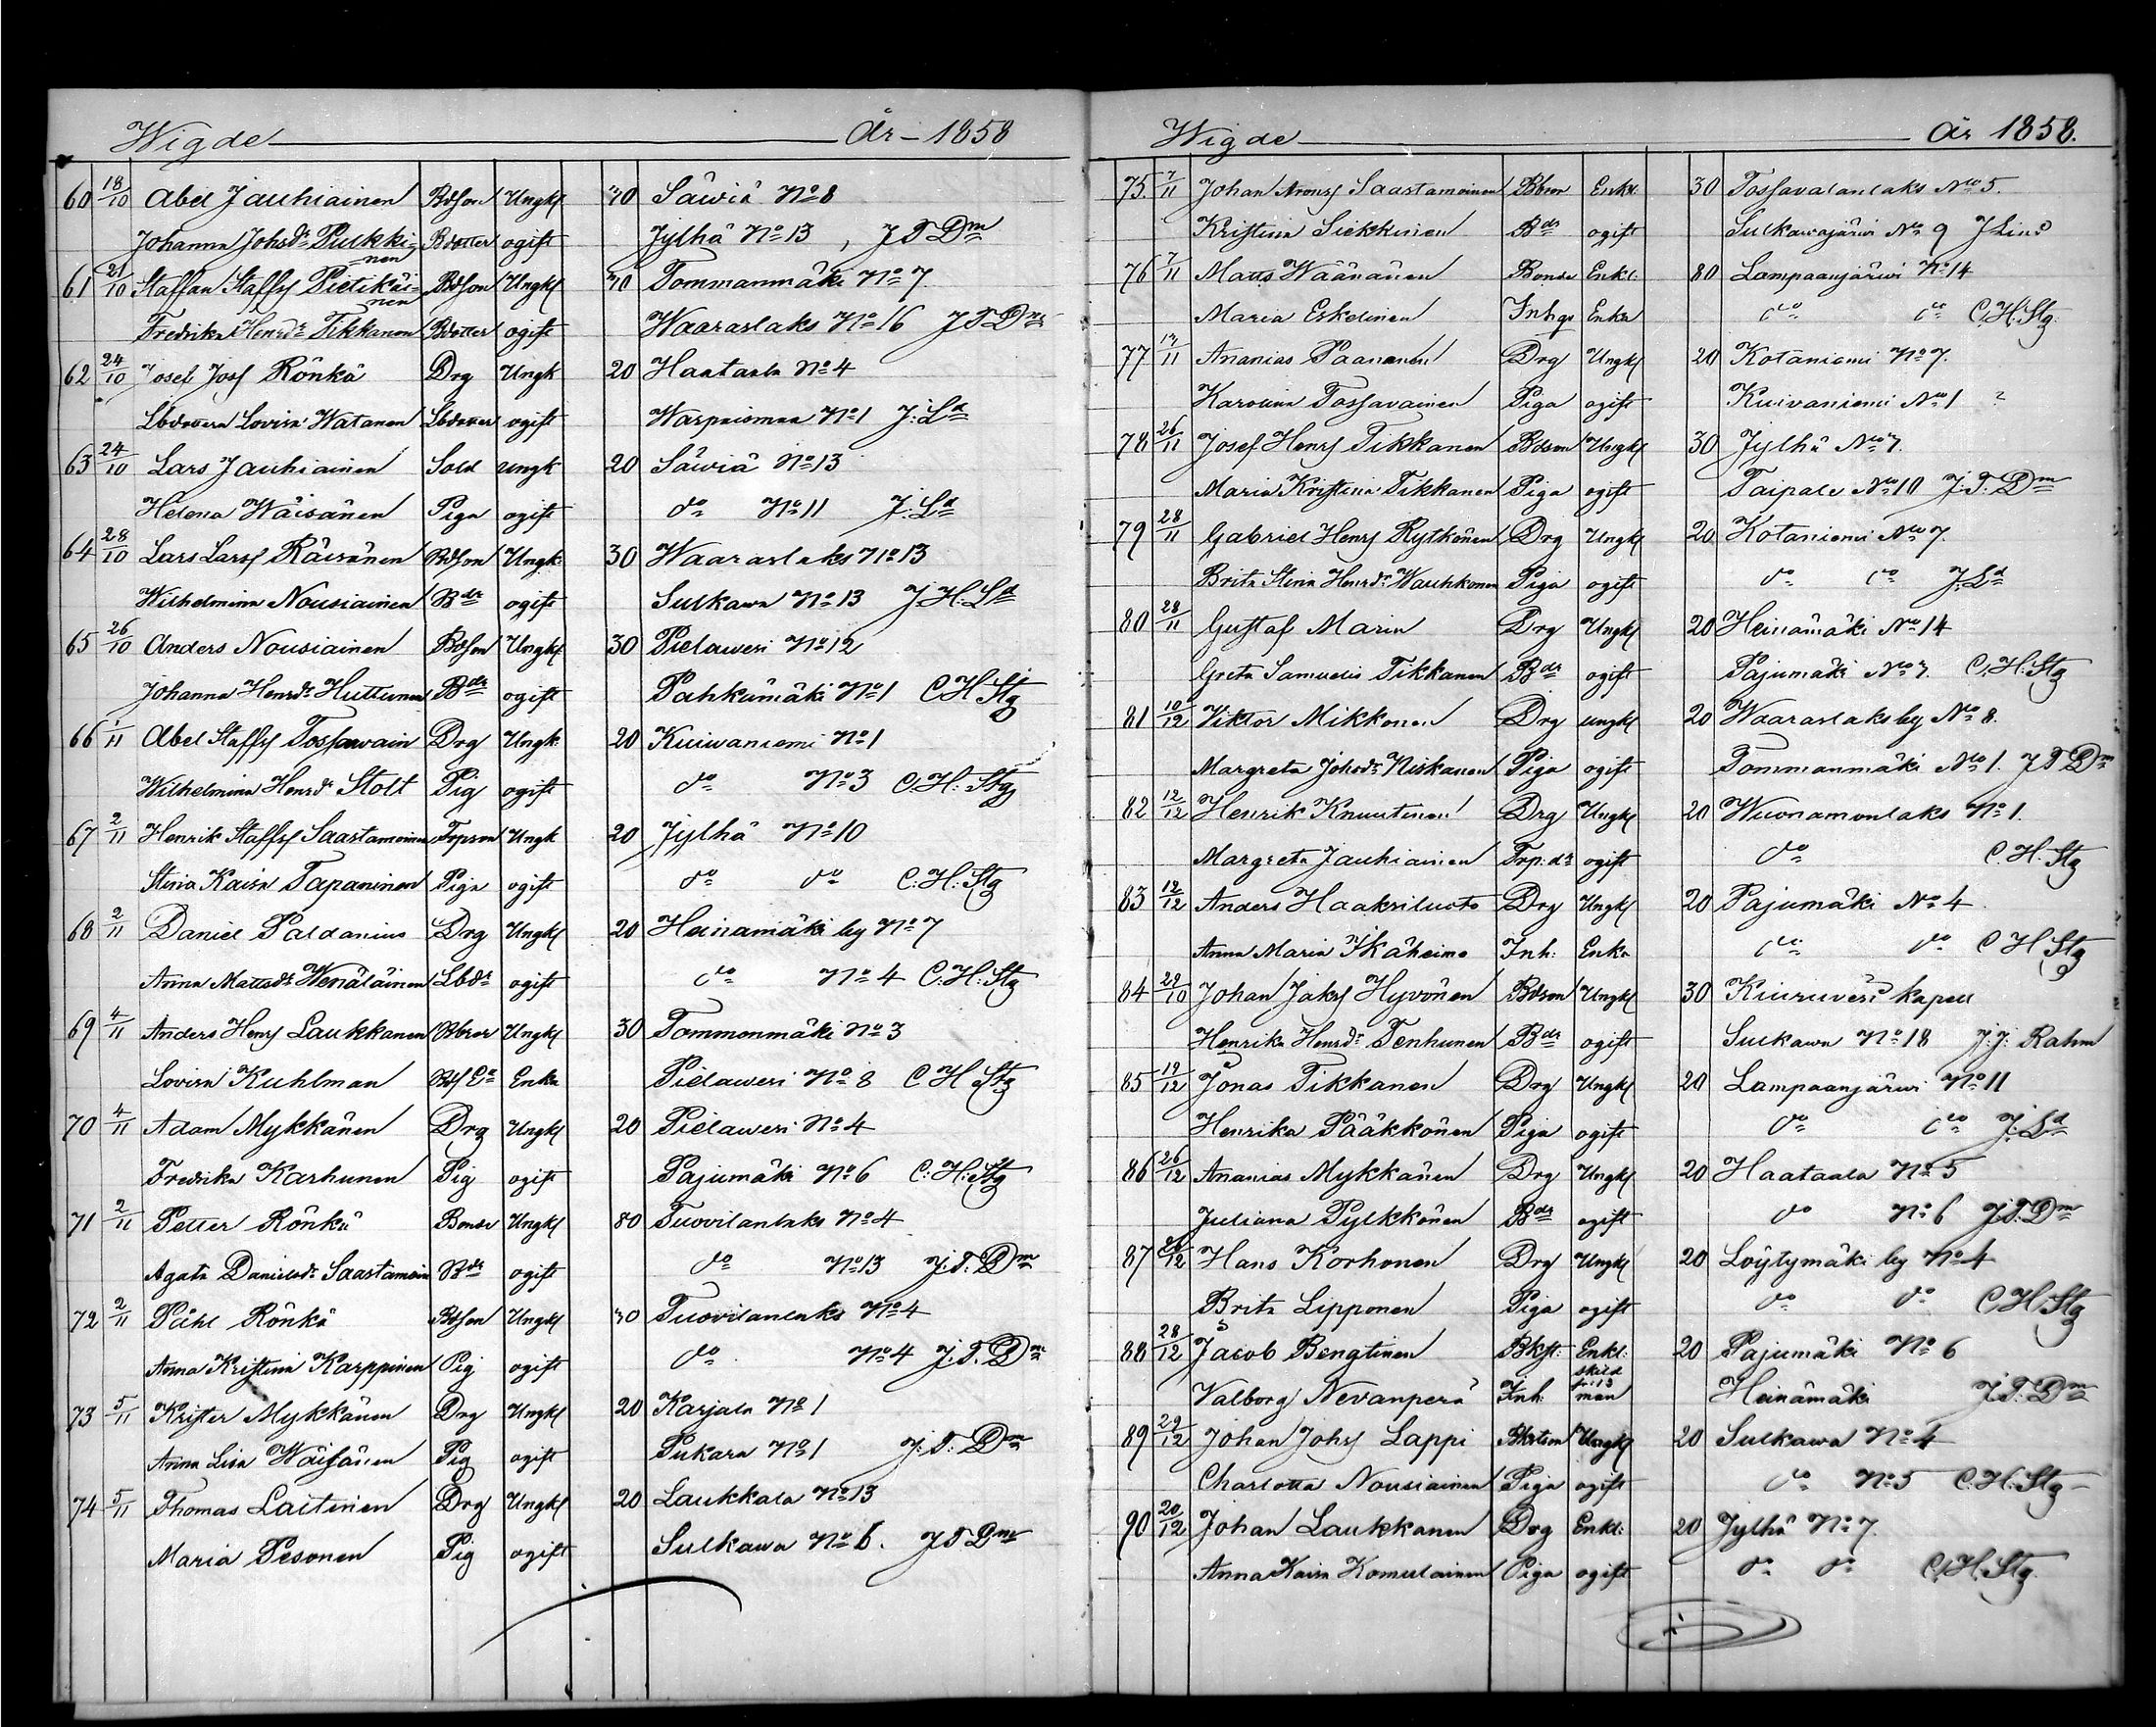 Wigde År - 1858
60 18/10 Abel Jauhiainen Bdson Ungk 40 Säwiä No 8
Johanna Johsdr Pulkki- Bdotter ogift Jylhä No 13, J T Dm
nen
61 21/10 Staffan Staffs Pietikäi- Bdson Ungk 40 Tommanmäki No 7.
nen
Fredrika Henrdr Tikkanen Bdotter ogift Waaraslaks No 16 J T Dm
62 24/10 Josef Jos Rönkä Drg Ungk 20 Haataala No 4
Lbdottern Lovisa Watanen Lbdotter ogift Warpaismaa No 1 J: Ld
63 24/10 Lars Jauhiainen Sold ungk 20 Säwiä No 13
Helena Wäisänen Piga ogift do No 11 J: Ld
64 28/10 Lars Larss Räisänen Bdson Ungk 30 Waaraslaks No 13
Wilhelmina Nousiainen Bdr ogift Sulkawa No 13 J. H: Ld
65 26/10 Anders Nousiainen Bdson Ungk 30 Pielawesi No 12
Johanna Henrdr Huttunen Bdr ogift Pahkamäki No 1 C H Stg
66 1/11 Abel Staffs Tossawain Drg Ungk 20 Kuiwaniemi No 1
Wilhelmina Henrdr Stolt Pig ogift do No 3 C. H: Stg
67 2/11 Henrik Staffs Saastamoinen Trpson Ungk 20 Jylhä No 10
Stina Kaisa Tapaninen Piga ogift do do C: H: Stg
68 2/11 Daniel Paldanius Drg Ungk 20 Heinamäki by No 7
Anna Mattsdr Wenäläinen Lbdr ogift do No 4 C: H: Stg
69 4/11 Anders Henrs Laukkanen Bbror Ungk 30 Tommonmäki No 3
Lovisa Kuhlman Enka Pielawesi No 8 C H Stg
70 4/11 Adam Mykkänen Drg Ungk 20 Pielawesi No 4
Fredrika Karhunen Pig ogift Pajumäki No 6 C: H: Stg
71 2/11 Petter Rönkä Bonde Ungk 80 Tuovilanlaks No 4
Agata Danielsdr Saastamoin Bdr ogift do No 13 J. T. Dm
72 2/11 Påhl Rönkä Bdson Ungk 30 Tuovilanlaks No 4
Anna Kristina Karppinen Pig ogift do No 4 J. T. Dm
73 5/11 Krister Mykkänen Drg Ungk 20 Karjala No 1
Anna Lisa Wäisänen Pig ogift Pukara No 1 J: T: Dm
74 5/11 Thomas Laitinen Drg Ungk 20 Laukkala No 13
Maria Pesonen Pig ogift Sulkawa No 6. J T Dm
Wigde År 1858.
75. 7/11 Johan Arons Saastamoinen Bbror Enkl 30 Tossavalanlaks No 5.
Kristina Siekkinen Bdr ogift Sulkawajärwi No 9 J Lind
76 7/11 Matts Wäänänen Bonde Enkl: 80 Lampaanjärwi No 14
Maria Eskelinen Inhgs Enka do do C. H. Stg.
77 14/11 Ananias Paananen Drg Ungk 20 Kotaniemi No 7.
Karolina Tossavainen Piga ogift Kuivaniemi No 1 ?
78 26/11 Josef Henrs Tikkanen Bdson Ungk 30 Jylhä No 7.
Maria Kristina Tikkanen Piga ogift Taipale No 10 J: T: Dm
79 28/11 Gabriel Henrs Rytkönen Drg Ungk 20 Kotaniemi No 7.
Brita Stina Henrdr Wauhkonen Piga ogift do do J: Ld
80 28/11 Gustaf Marin Drg Ungk 20 Heinämäki No 14
Greta Samuelis Tikkanen Bdr ogift Pajumäki No 7. C. H: Stg
81 10/12 Viktor Mikkonen Drg ungk 20 Waaraslaks by No 8.
Margreta Johsdr Niskanen Piga ogift Tommanmäki No 1. J T Dm
82 12/12 Henrik Knuutinen Drg Ungk 20 Wuonamonlaks No 1.
Margreta Jauhiainen Trp: dr ogift do C. H. Stg
83 12/12 Anders Haaksiluoto Drg Ungk 20 Pajumäki No 4
Anna Maria Ikäheimo Inh: Enka do do C H Stg
84 22/10 Johan Jaks Hyvönen Bdson Ungk 30 Kiuruvesi kapell
Henrika Henrdr Tenhunen Bdr ogift Sulkawa No 18 J: J: Rahm
85 19/12 Jonas Tikkanen Drg Ungk 20 Lampaanjärwi No 11
Henrika Pääkkönen Piga ogift do do J: Ld
86 26/12 Ananias Mykkänen Drg Ungk 20 Haataala No 5
Juliana Pylkkönen Bdr ogift do No 6 J. T. Dm
87 26/12 Hans Korhonen Drg Ungk 20 Löytymäki by No 4
Brita Lipponen Piga ogift do do C H Stg
88 28/12 Jacob Bengtinen Bkst: Enkl: 20 Pajumäki No 6
skild
Valborg Nevanperä Inh: man Heinämäki J. T: Dm
89 29/12 Johan Johs Lappi Bkstson Ungk 20 Sulkawa No 4
Charlotta Nousiainen Piga ogift do No 5 C. H. Stg
90 20/12 Johan Laukkanen Drg Enkl: 20 Jylhä No 7
Anna Kaisa Komulainen Piga ogift do do C. H. Stg.